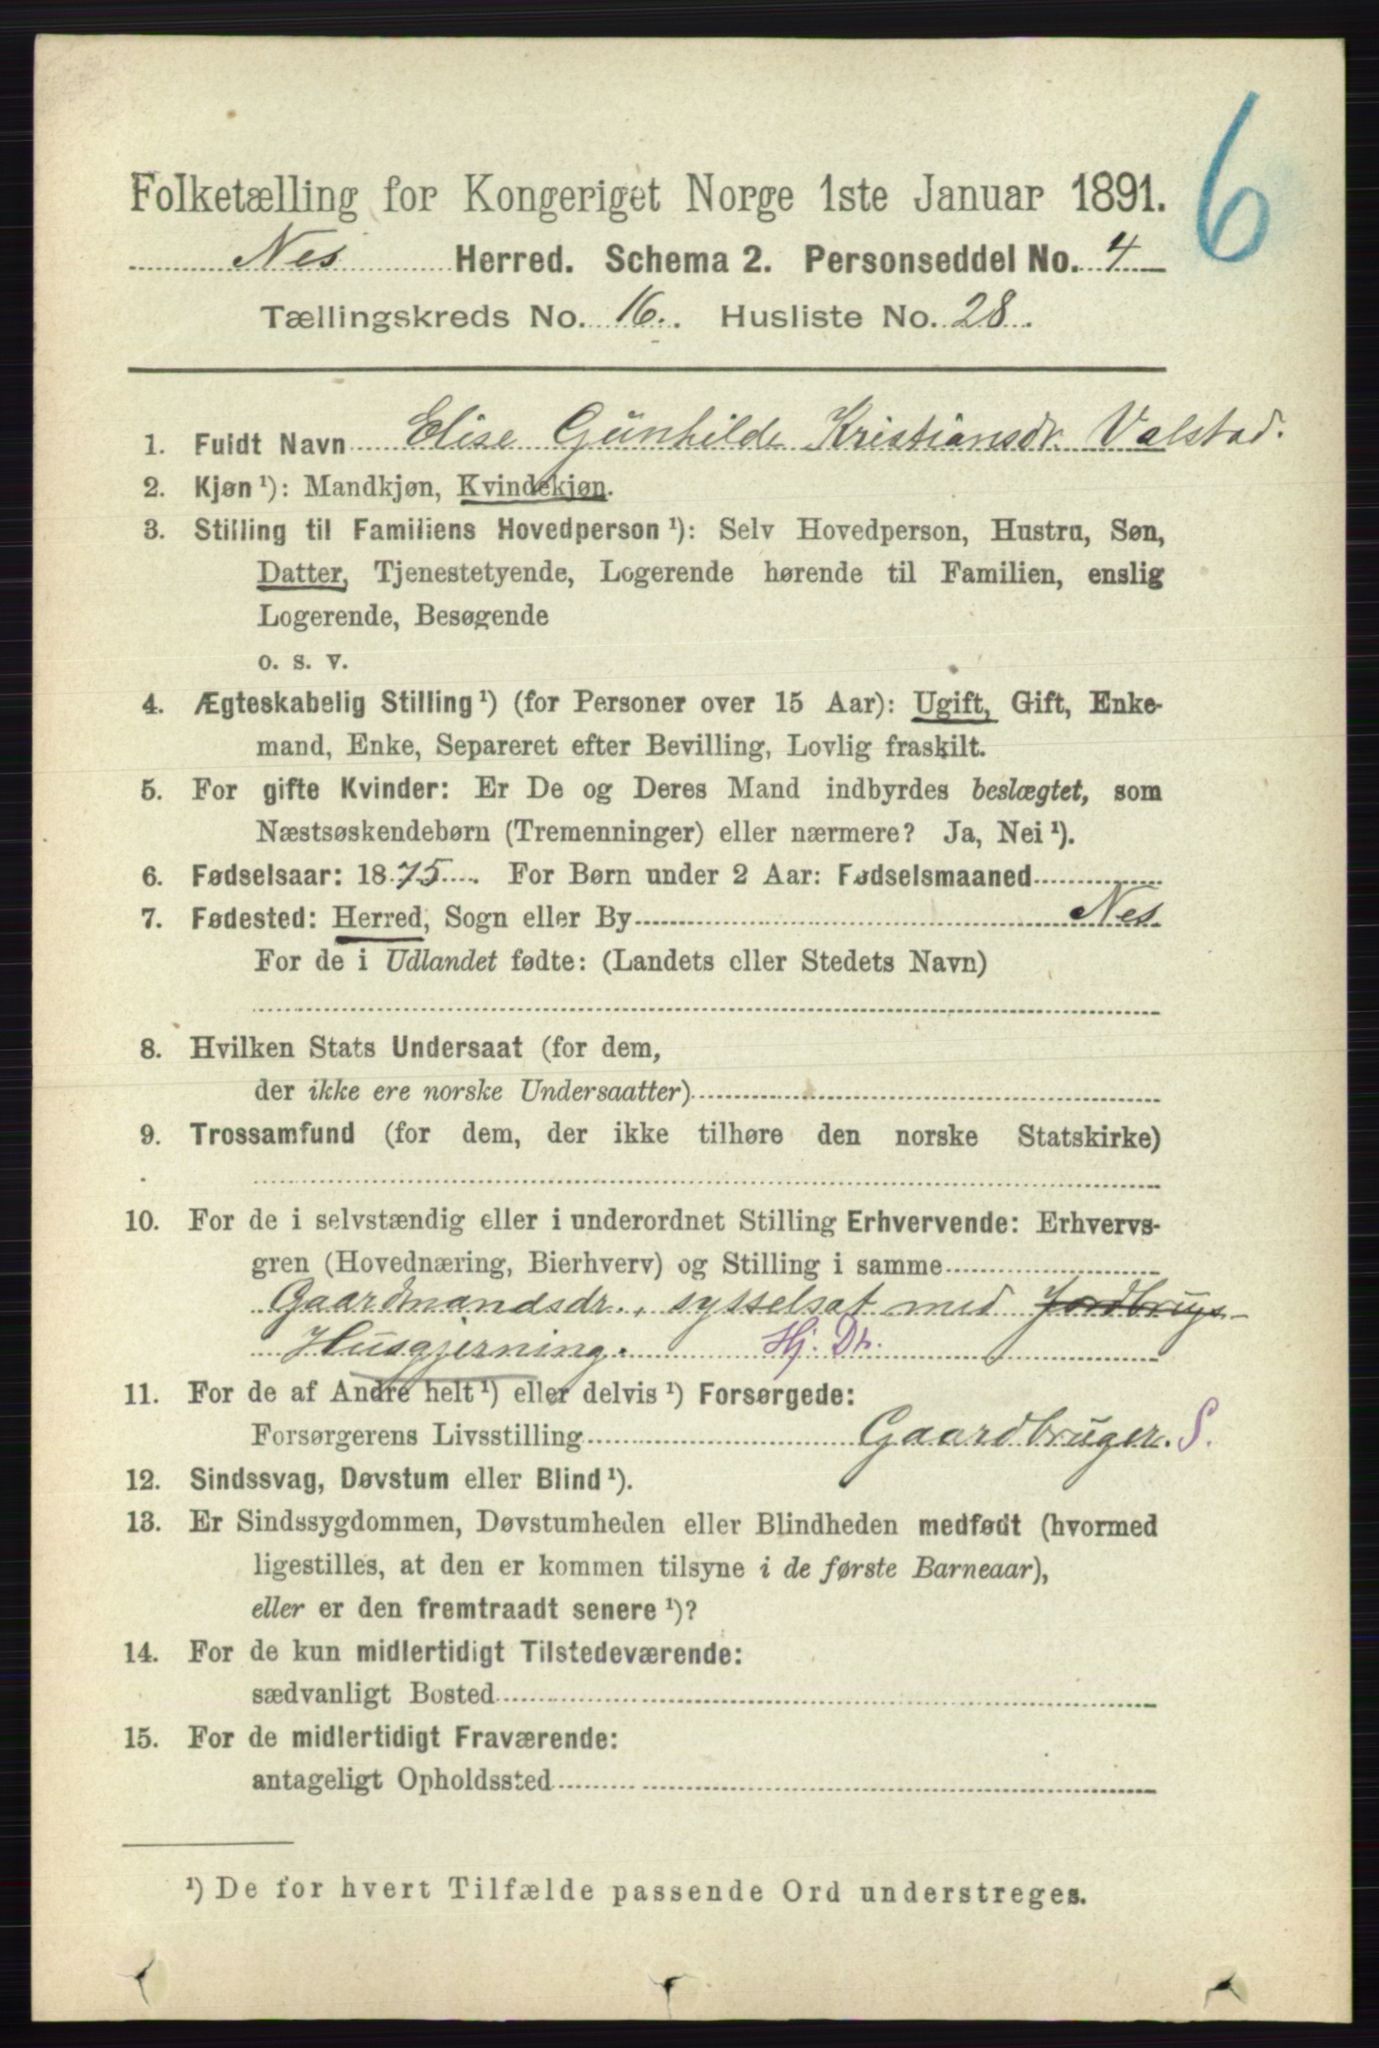 6
Folketælling for Kongeriget Norge 1ste Januar 1891.
Nes Herred. Schema 2. Personseddel No. 4
Tællingskreds No. 16. Husliste No. 28.
1. Fuldt Navn Elise Gunhilde Kristiansdr. Valstad.
2. Kjøn ¹): Mandkjøn, Kvindekjøn.
3. Stilling til Familiens Hovedperson ¹): Selv Hovedperson, Hustru, Søn,
Datter, Tjenestetyende, Logerende hørende til Familien, enslig
Logerende, Besøgende
o. s. v.
4. Ægteskabelig Stilling ¹) (for Personer over 15 Aar): Ugift, Gift, Enke-
mand, Enke, Separeret efter Bevilling, Lovlig fraskilt.
5. For gifte Kvinder: Er De og Deres Mand indbyrdes beslægtet, som
Næstsøskendebørn (Tremenninger) eller nærmere? Ja, Nei ¹).
6. Fødselsaar: 1875. For Børn under 2 Aar: Fødselsmaaned
7. Fødested: Herred, Sogn eller By Nes.
For de i Udlandet fødte: (Landets eller Stedets Navn)
8. Hvilken Stats Undersaat (for dem,
der ikke ere norske Undersaatter)
9. Trossamfund (for dem, der ikke tilhøre den norske Statskirke)
10. For de i selvstændig eller i underordnet Stilling Erhvervende: Erhvervs-
gren (Hovednæring, Bierhverv) og Stilling i samme
Gaardmandsdr., sysselsat med Jordbrugs-
Husgjerning. Hj. Dtr.
11. For de af Andre helt ¹) eller delvis ¹) Forsørgede:
Forsørgerens Livsstilling Gaardbruger. S.
12. Sindssvag, Døvstum eller Blind ¹).
13. Er Sindssygdommen, Døvstumheden eller Blindheden medfødt (hvormed
ligestilles, at den er kommen tilsyne i de første Barneaar),
eller er den fremtraadt senere ¹)?
14. For de kun midlertidigt Tilstedeværende:
sædvanligt Bosted
15. For de midlertidigt Fraværende:
antageligt Opholdssted
¹) De for hvert Tilfælde passende Ord understreges.